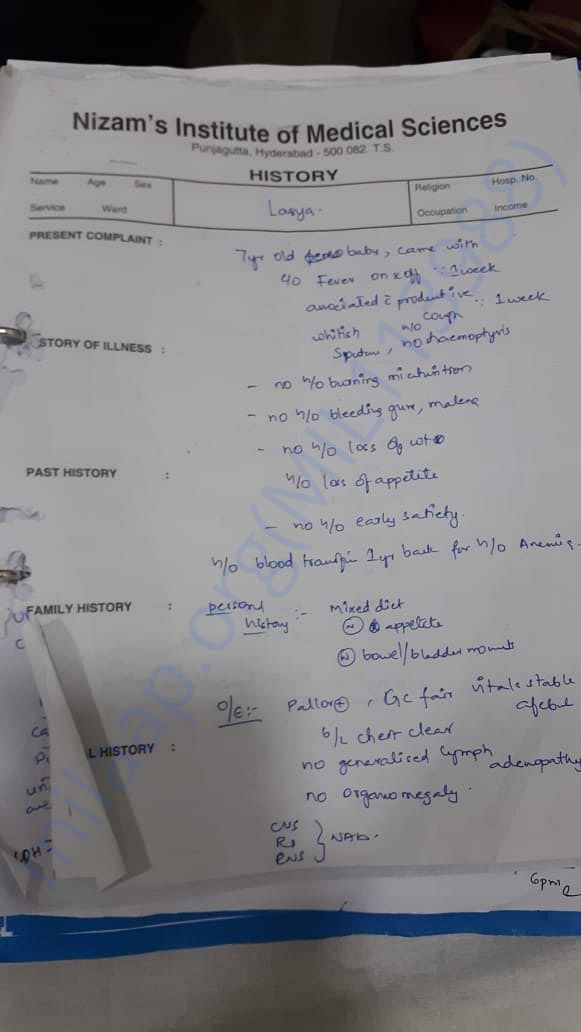 Nizam's Institute of Medical Sciences
Punjagutta, Hyderabad - 500 082. T.S.
HISTORY
Name Age Sex
Service Ward
Lasya.
Religion Hosp. No.
Occupation Income
PRESENT COMPLAINT :
7yr old baby, came with
Fever on & off :: 1 week
associated c̄ productive cough :: 1 week
whitish sputum, no h/o haemoptysis
STORY OF ILLNESS :
- no h/o burning mictuition
- no h/o bleeding gum, malena
- no h/o loss of wt
PAST HISTORY :
h/o loss of appetite
- no h/o early satiety.
h/o blood transfn 1yr back for h/o Anemia.
FAMILY HISTORY :
personal history :- Mixed diet
(N) appetite
(N) bowel/bladder movmts
O/E:- Pallor ⊕, GC fair vitals stable
afebril
b/L chest clear
L HISTORY :
no generalised lymph adenopathy
no organomegaly.
CNS
RS
} NAD.
6pm
milaap.org(MIL113988)